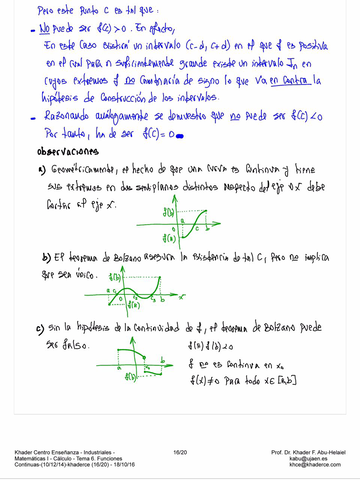 Pero este punto c es tal que:
- No puede ser f(c) > 0. En efecto,
En este caso existiría un intervalo (c-d, c+d) en el que f es positiva
en el cual para n suficientemente grande existe un intervalo In en
cuyos extremos f no cambiaría de signo lo que va en contra la
hipótesis de construcción de los intervalos.
- Razonando análogamente se demuestra que no puede ser f(c) < 0
Por tanto, ha de ser f(c) = 0
Observaciones
a) Geométricamente, el hecho de que una curva es continua y tiene
sus extremos en dos semiplanos distintos respecto del eje OX debe
cortar al eje x.
f(b)
a
c b
f(a)
b) El teorema de Bolzano asegura la existencia de tal c, pero no implica
que sea único.
f(b)
b
x
f(a)
c) Sin la hipótesis de la continuidad de f, el teorema de Bolzano puede
ser falso.
f(a) f(b) < 0
f no es continua en x₀
f(x) ≠ 0 para todo x ∈ [a,b]
f(a)
a
x₀
b
f(b)
Khader Centro Enseñanza - Industriales -
Matemáticas I - Cálculo - Tema 6. Funciones
Continuas-(10/12/14)-khaderce (16/20) - 18/10/16
16/20
Prof. Dr. Khader F. Abu-Helaiel
kabu@ujaen.es
khce@khaderce.com